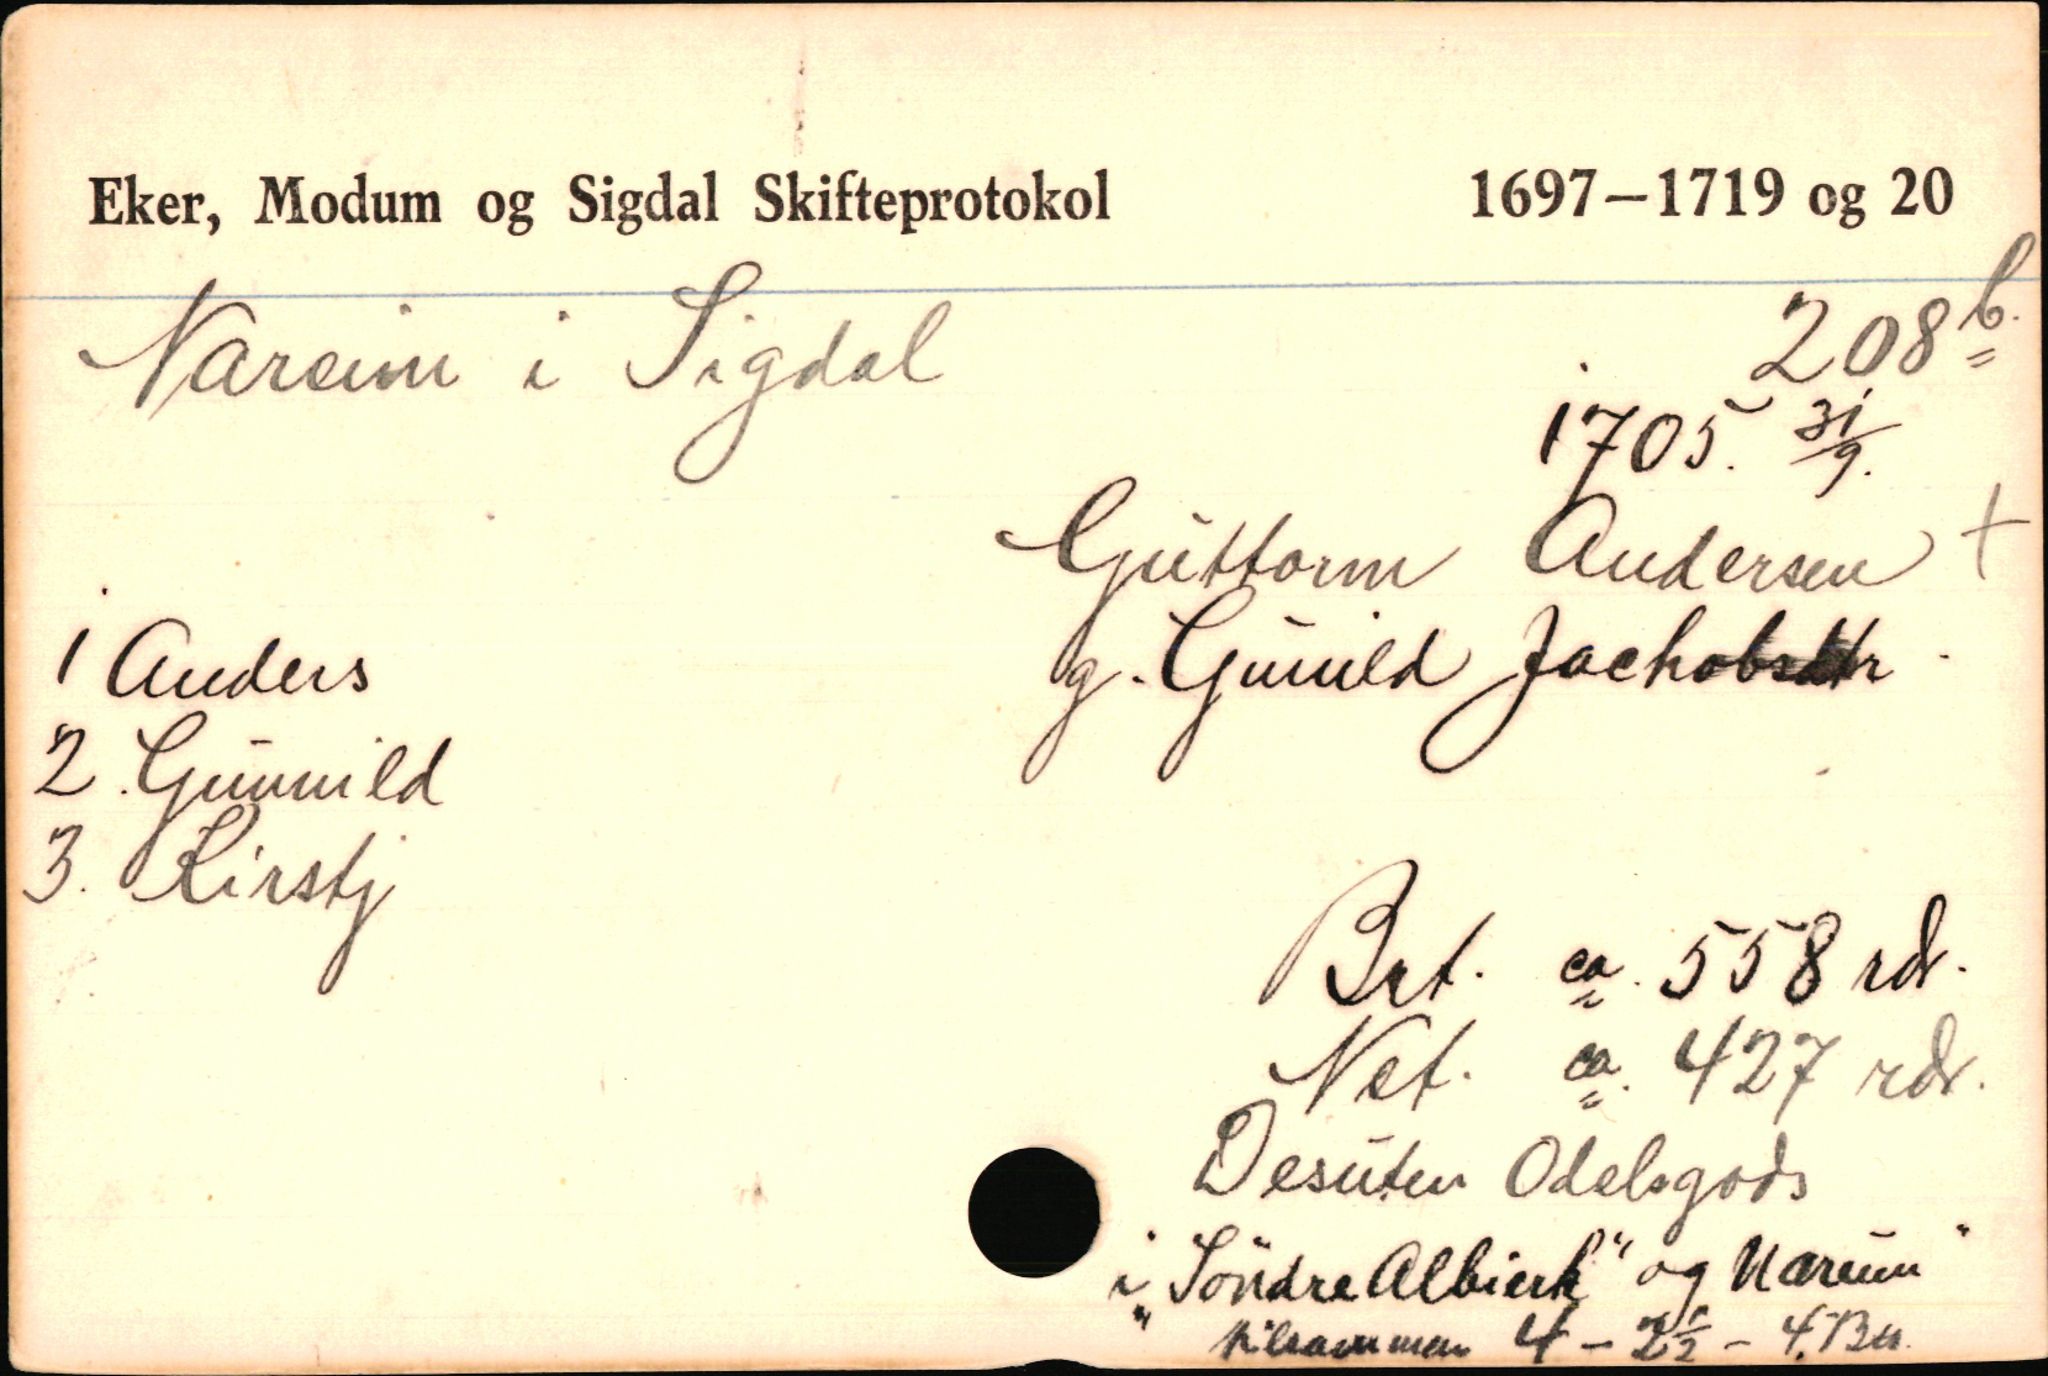 Eker, Modum og Sigdal Skifteprotokol 1697–1719 og 20
Nareim i Sigdal 208 b.
1705. 31/9.
Guttorm Andersen +
g. Gunild Jachobsdtr.
1 Anders
2. Gunnild
3. Kirstj
Brt. ca. 558 rdr.
Net. ca. 427 rdr.
Desuten Odelsgods
i "Söndre Albierk" og Nareim"
tilsammen 4 – 2 1/2 – 4. B